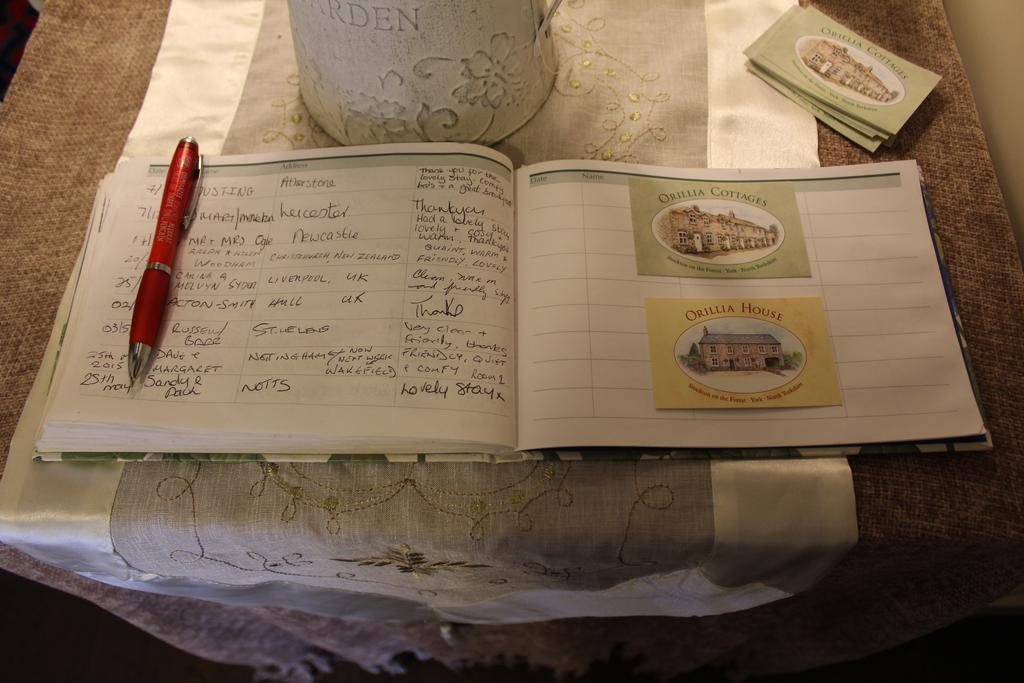 ARDEN
ORILLIA COTTAGES
Date
Address
7/
USTING
Atherstone
Thank you for the
lovely stay comfy
beds + a great breakfast
7/1
Leicester
Thankyou
Had a lovely stay
MR + MRS Ogle
Newcastle
lovely + cosy +
warm, Thankyou
20/
RALPH & HELEN
WOODHAM
CHRISTCHURCH NEW ZEALAND
QUAINT, WARM +
FRIENDLY, LOVELY
25/
CARINA &
MELVYN SYDER
LIVERPOOL, UK
Clean, warm
and friendly stay
02/
ACTON-SMITH
HULL UK
Thanks
03/5
RUSSELL/
ST. HELENS
Very clean +
friendly, thanks
25th
2015
DAVE &
MARGARET
NOTTINGHAM NOW
NEXT WEEK
WAKEFIELD
FRIENDLY, QUIET
& COMFY ROOM 1
25th may
Sandy &
Paul
NOTTS
Lovely stay x
Date
Name
ORILLIA COTTAGES
Stockton on the Forest · York · North Yorkshire
ORILLIA HOUSE
Stockton on the Forest · York · North Yorkshire